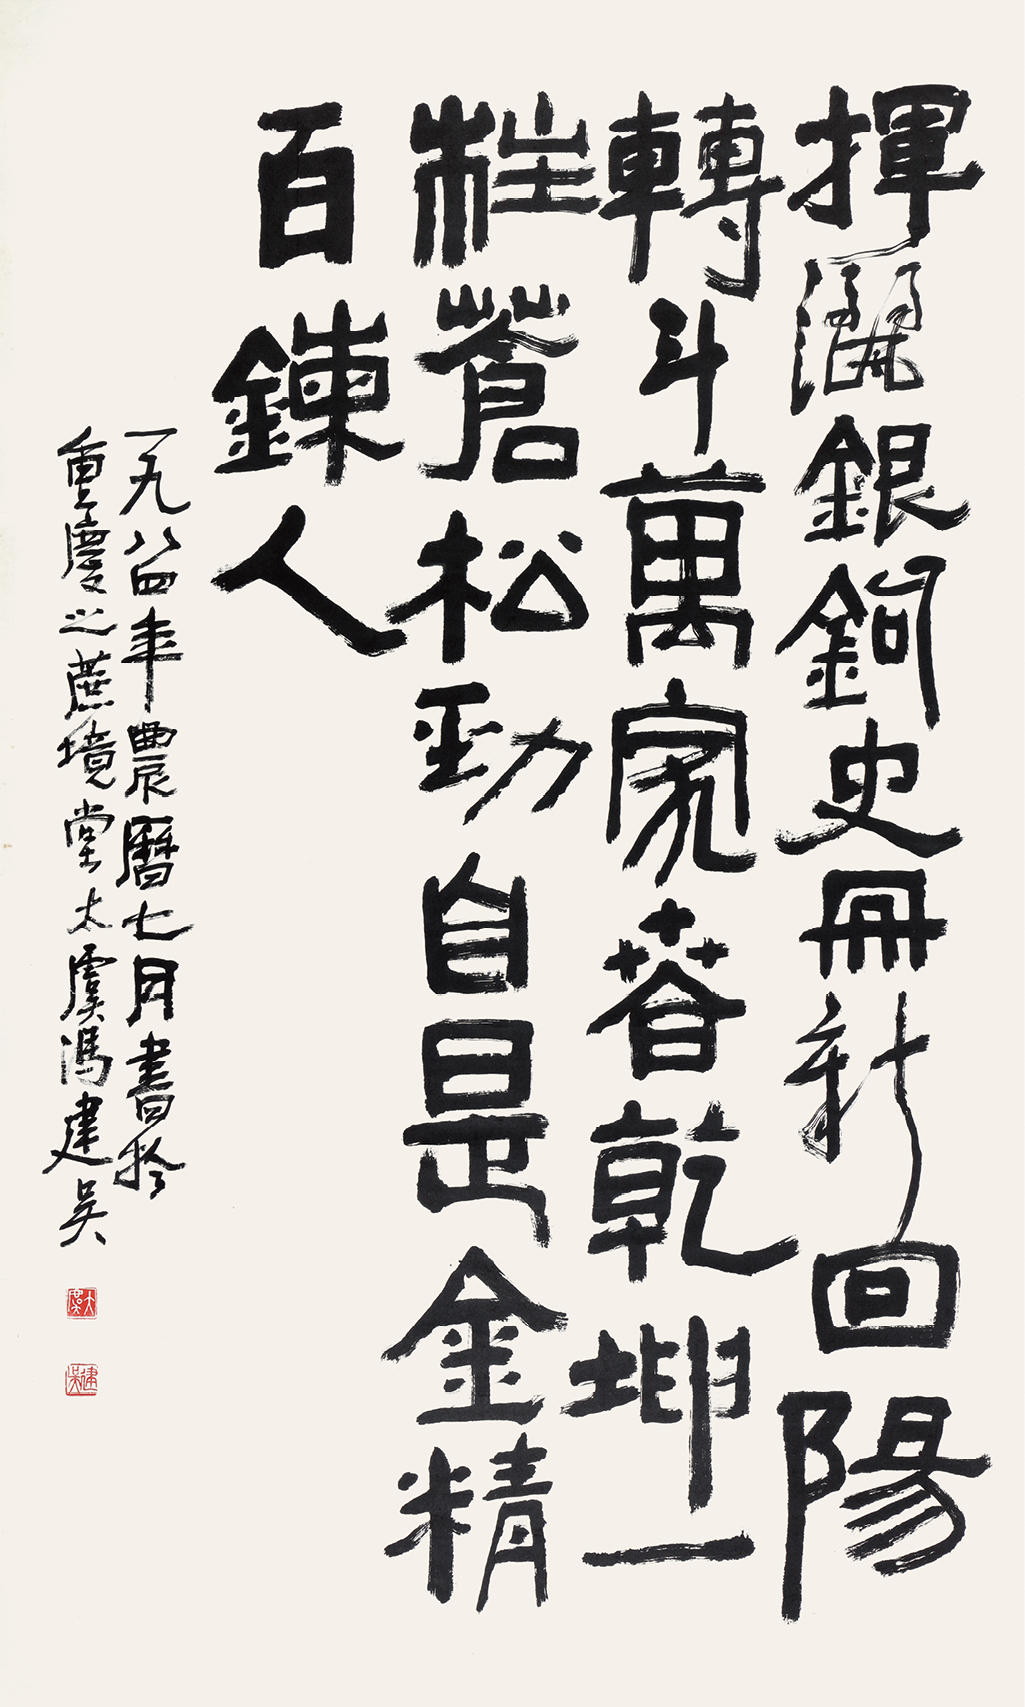 揮灑銀鉤史冊新回陽
轉斗萬家春乾坤一
柱蒼松勁自是金精
百鍊人
一九八四年農曆七月書於
重慶之蔗境堂太虞馮建吳
大虞
建吳